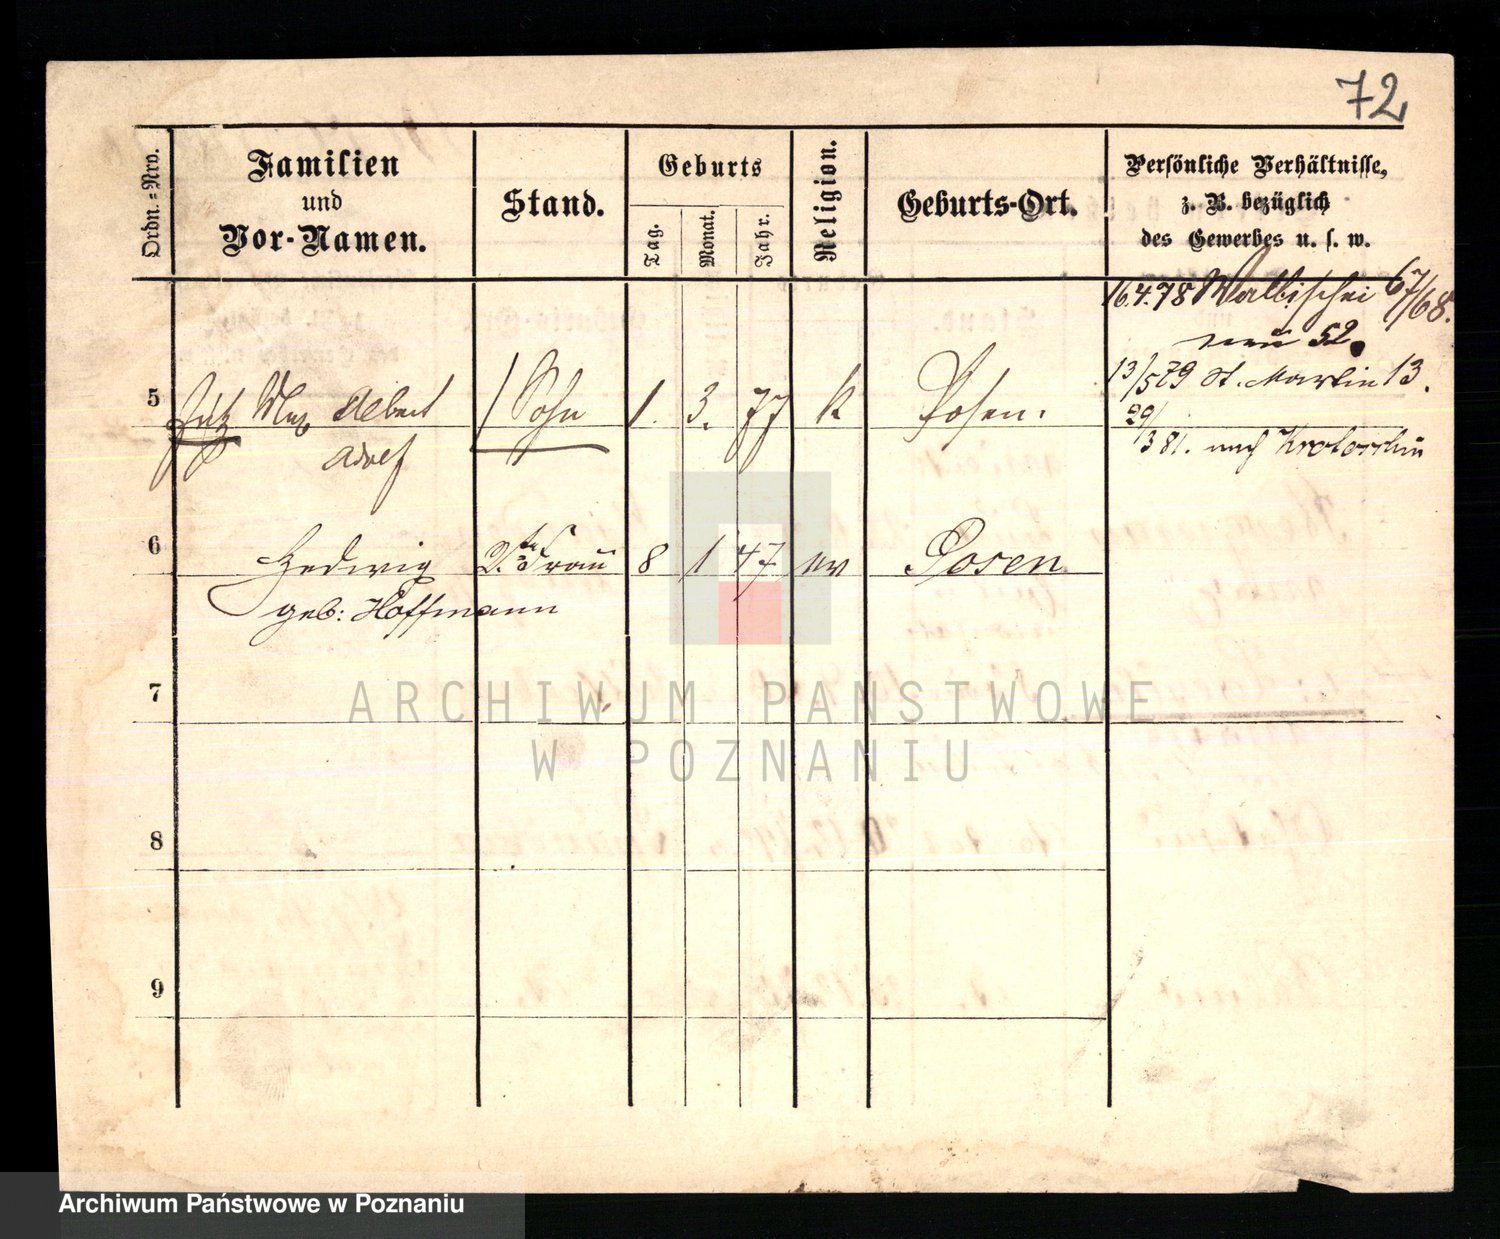 72
Ordn.-Nro.
Familien
und
Vor-Namen.
Stand.
Geburts
Tag.
Monat.
Jahr.
Religion.
Geburts-Ort.
Persönliche Verhältnisse,
z. B. bezüglich
des Gewerbes u. s. w.
16.4.78 Wallischei 67/68.
neu 52.
13/5 79 St. Martin 13.
5 Fritz Max Albert / Sohn 1. 3. 77 k Posen.
Adolf
29/3 81. nach Krotoschin
6 Hedwig 2te Frau 8 1 47 ev Posen
geb: Hoffmann
7
ARCHIWUM PAŃSTWOWE
W POZNANIU
8
9
Archiwum Państwowe w Poznaniu